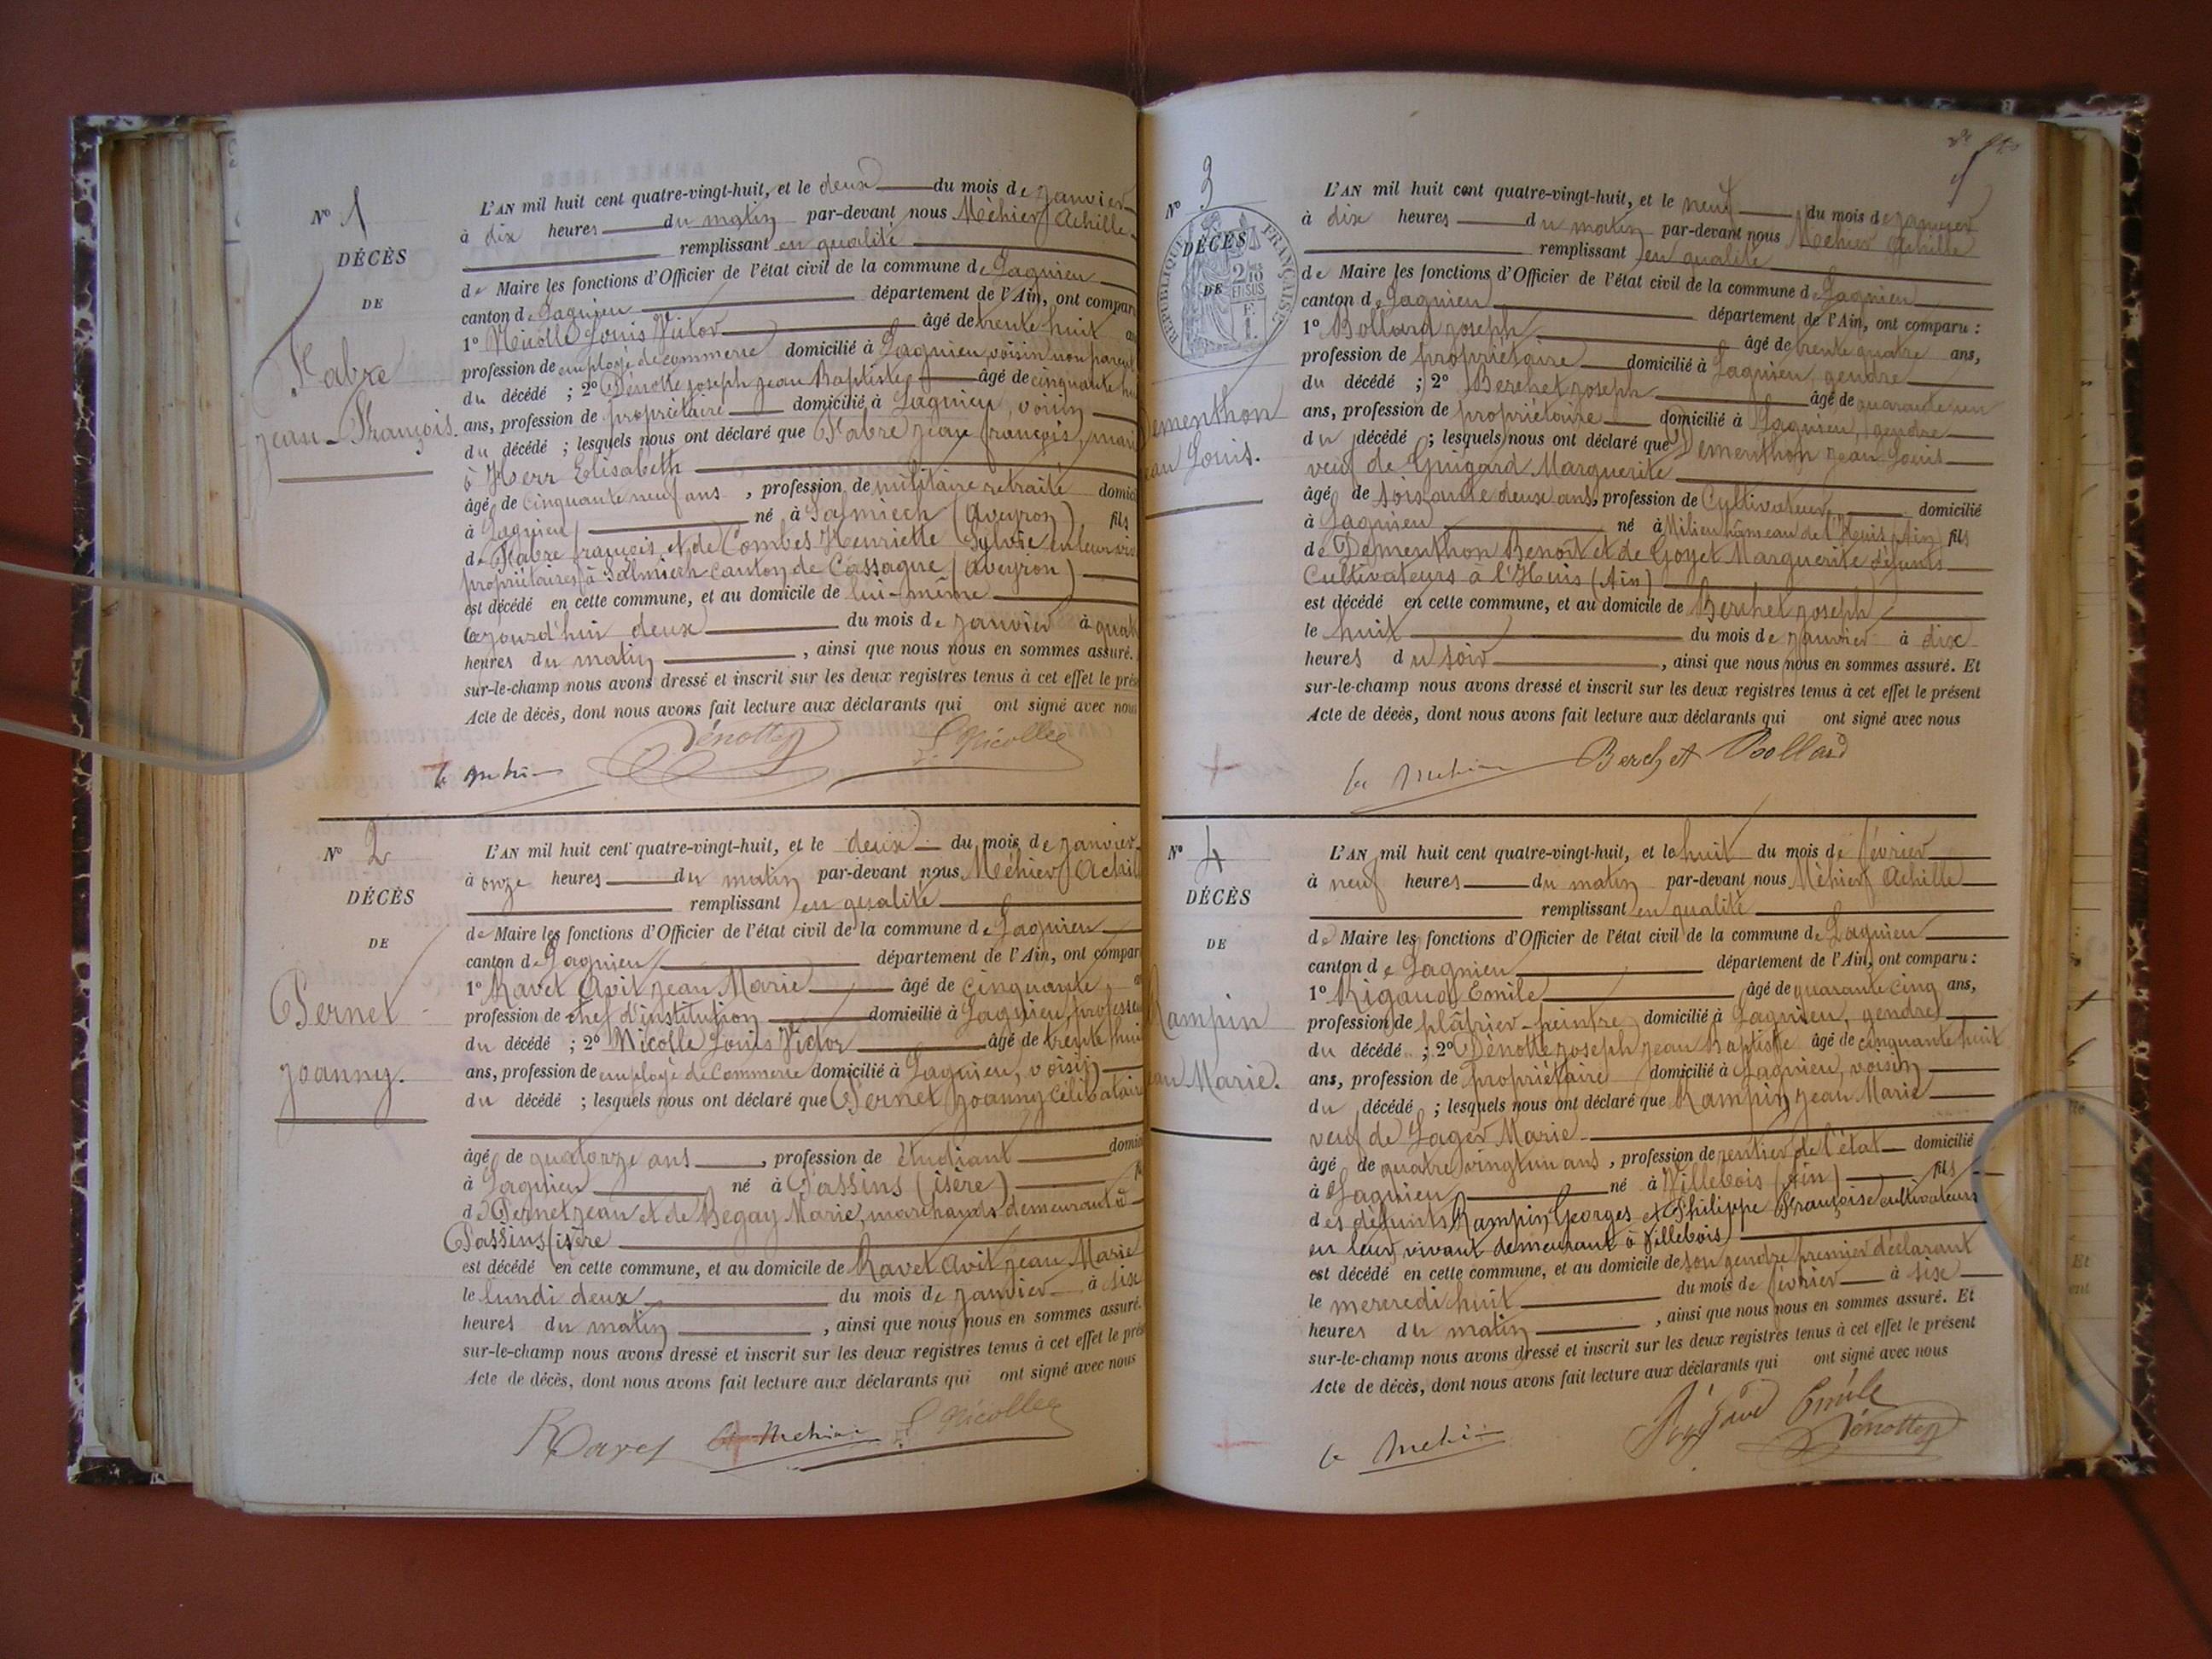 N° 1
DÉCÈS
DE
Fabre
Jean-François.
L'AN mil huit cent quatre-vingt-huit, et le deux du mois de janvier
à dix heures du matin par-devant nous Méhier Achille
remplissant en qualité
de Maire les fonctions d'Officier de l'état civil de la commune de Lagnieu
canton de Lagnieu département de l'Ain, ont compar
1° Nicolle Louis Victor âgé de trente huit an
profession de employé de commerce domicilié à Lagnieu, voisin non parent
du décédé ; 2° Dénotte Joseph Jean Baptiste âgé de cinquante hu
ans, profession de propriétaire domicilié à Lagnieu, voisin
du décédé ; lesquels nous ont déclaré que Fabre Jean François, mari
à Herr Elisabeth
âgé de Cinquante neuf ans, profession de militaire retraité domic
à Lagnieu né à Salmiech (Aveyron) fils
de Fabre françois et de Combes Henriette Sylvie en leur viv
propriétaires à Salmiech canton de Cassagne (Aveyron)
est décédé en cette commune, et au domicile de lui-même
cejourd'hui deux du mois de janvier à quat
heures du matin, ainsi que nous nous en sommes assuré.
sur-le-champ nous avons dressé et inscrit sur les deux registres tenus à cet effet le prés
Acte de décès, dont nous avons fait lecture aux déclarants qui ont signé avec nous
Dénotte L. Nicolle
N° 2
DÉCÈS
DE
Pernet
Joanny.
L'AN mil huit cent quatre-vingt-huit, et le deux du mois de janvier
à onze heures du matin par-devant nous Méhier Achil
remplissant en qualité
de Maire les fonctions d'Officier de l'état civil de la commune de Lagnieu
canton de Lagnieu département de l'Ain, ont compar
1° Ravet Avit Jean Marie âgé de cinquante
profession de chef d'institution domicilié à Lagnieu, professeu
du décédé ; 2° Nicolle Louis Victor âgé de trente hui
ans, profession de employé de Commerce domicilié à Lagnieu, voisin
du décédé ; lesquels nous ont déclaré que Pernet Joanny Célibatair
âgé de quatorze ans, profession de étudiant domic
à Lagnieu né à Passins (isère)
de Pernet Jean et de Begay Marie, marchands demeurant à
Passins (isère
est décédé en cette commune, et au domicile de Ravet Avit Jean Marie
le lundi deux du mois de janvier à six
heures du matin, ainsi que nous nous en sommes assuré.
sur-le-champ nous avons dressé et inscrit sur les deux registres tenus à cet effet le prés
Acte de décès, dont nous avons fait lecture aux déclarants qui ont signé avec nous
Ravet A. Mehier L. Nicolle
N° 3
DÉCÈS
DE
RÉPUBLIQUE FRANÇAISE
2/10 EN SUS
Dementhon
ean Louis.
L'AN mil huit cent quatre-vingt-huit, et le neuf du mois de janvier
à dix heures du matin par-devant nous Méhier Achille
remplissant en qualité
de Maire les fonctions d'Officier de l'état civil de la commune de Lagnieu
canton de Lagnieu département de l'Ain, ont comparu :
1° Bollard Joseph âgé de trente quatre ans,
profession de propriétaire domicilié à Lagnieu, gendre
du décédé ; 2° Berchet Joseph âgé de quarante un
ans, profession de propriétaire domicilié à Lagnieu, gendre
du décédé ; lesquels nous ont déclaré que Dementhon Jean Louis
veuf de Guigard Marguerite
âgé de soixante deux ans, profession de Cultivateur domicilié
à Lagnieu né à Milieu hameau de l'Huis (Ain) fils
de Dementhon Benoît et de Goyet Marguerite défunts
Cultivateurs à l'Huis (Ain)
est décédé en cette commune, et au domicile de Berchet Joseph
le huit du mois de janvier à dix
heures du soir, ainsi que nous nous en sommes assuré. Et
sur-le-champ nous avons dressé et inscrit sur les deux registres tenus à cet effet le présent
Acte de décès, dont nous avons fait lecture aux déclarants qui ont signé avec nous
Berchet Bollard
N° 4
DÉCÈS
DE
Rampin
ean Marie.
L'AN mil huit cent quatre-vingt-huit, et le huit du mois de février
à neuf heures du matin par-devant nous Méhier Achille
remplissant en qualité
de Maire les fonctions d'Officier de l'état civil de la commune de Lagnieu
canton de Lagnieu département de l'Ain, ont comparu :
1° Rigaud Emile âgé de quarante cinq ans,
profession de plâtrier-peintre domicilié à Lagnieu, gendre
du décédé ; 2° Dénotte Joseph Jean Baptiste âgé de cinquante huit
ans, profession de propriétaire domicilié à Lagnieu, voisin
du décédé ; lesquels nous ont déclaré que Rampin Jean Marie
veuf de Lager Marie
âgé de quatre vingt un ans, profession de rentier de l'état domicilié
à Lagnieu né à Villebois (Ain) fils
des défunts Rampin Georges et Philippe Françoise cultivateurs
en leur vivant demeurant à Villebois
est décédé en cette commune, et au domicile de son gendre premier déclarant
le mercredi huit du mois de février à six
heures du matin, ainsi que nous nous en sommes assuré. Et
sur-le-champ nous avons dressé et inscrit sur les deux registres tenus à cet effet le présent
Acte de décès, dont nous avons fait lecture aux déclarants qui ont signé avec nous
Rigaud Emile
Dénotte